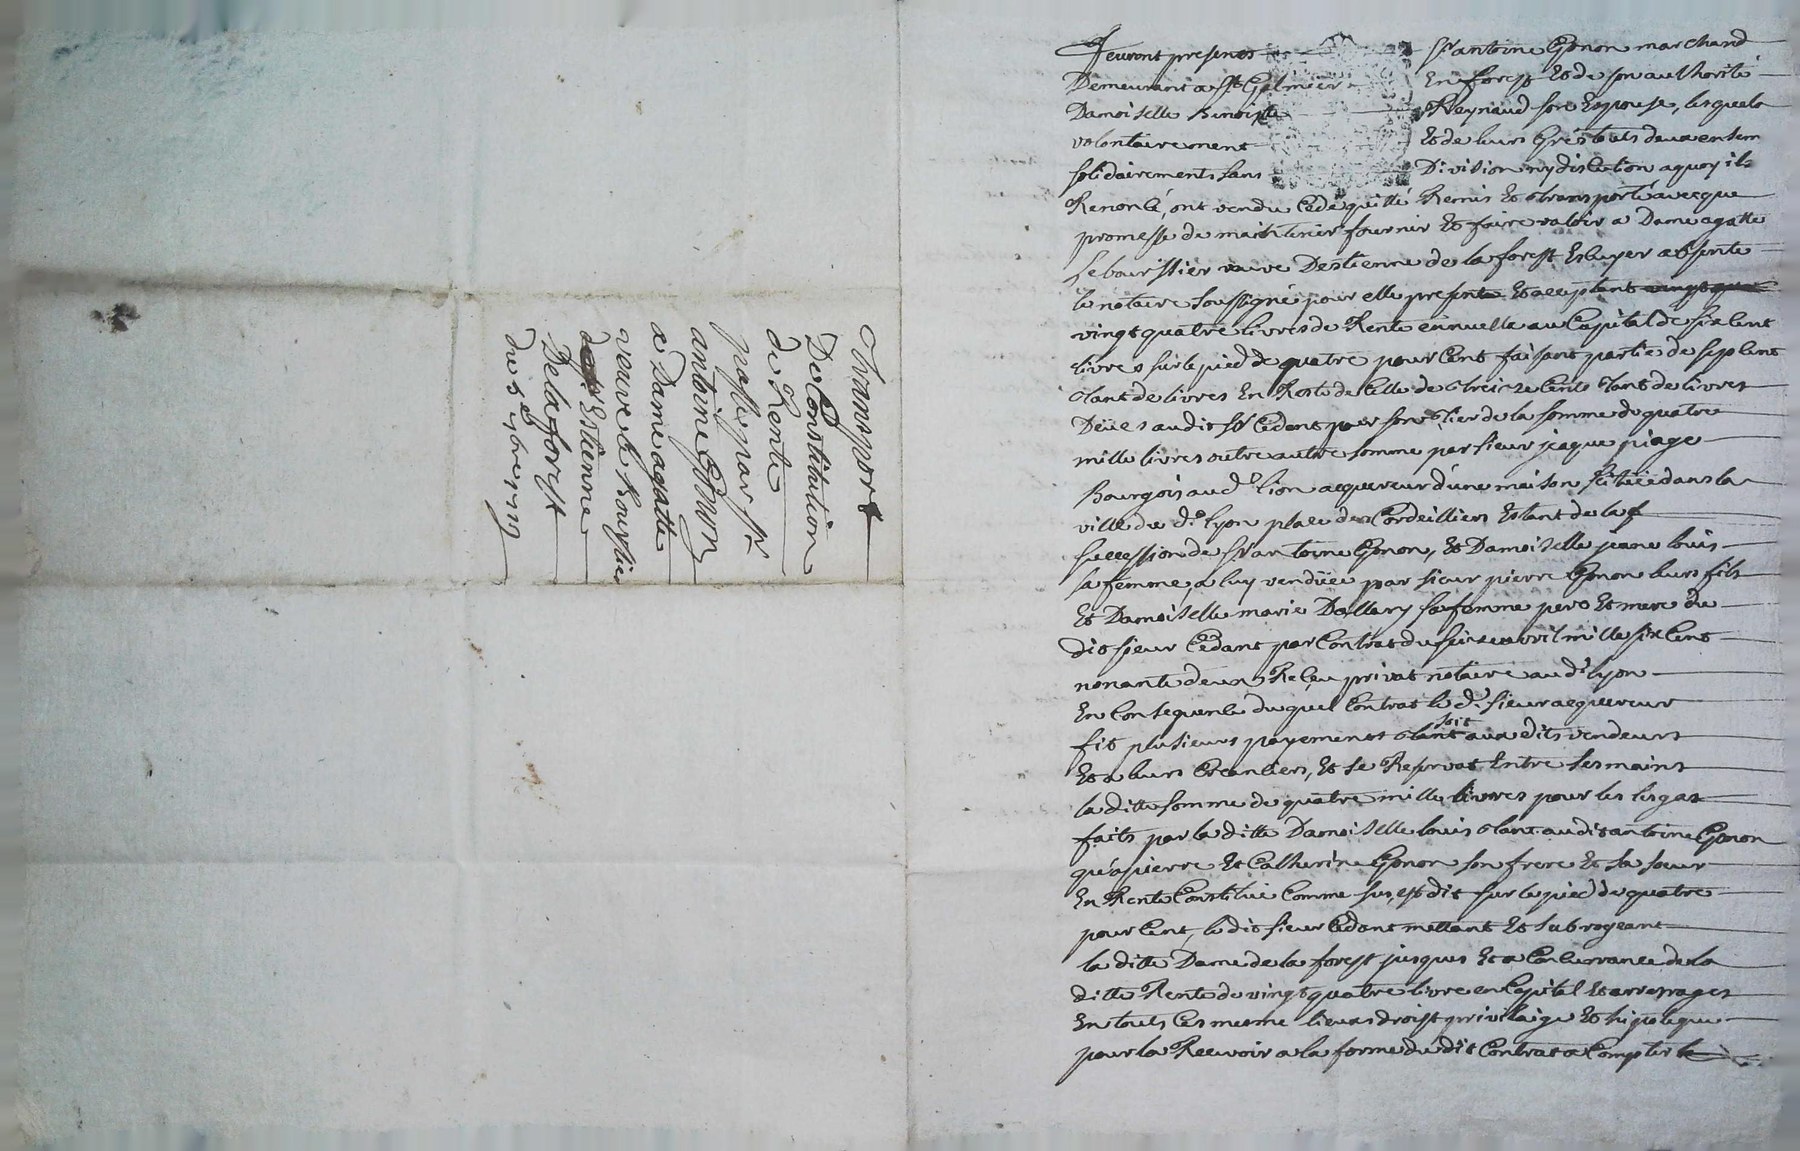 Transport
De Constitution
de Rente
passé par sr
antoine Gonon
a Dame agatte
veuve le boursier
Estienne
De la forest
du 5e 7bre 1719
Feurent presents sr antoine Gonon marchand
Demeurant a st Galmier En forest Et de son authorité
Damoiselle Benoiste Reynaud son Espouse, lesquels
volontairement Et de leurs Grés touts deux ensem
solidairement sans Division ny discution a quoy ils
Renoncé, ont vendu Cedé quitté Remis Et transporté avecque
promesse de maintenir fournir Et faire valoir a Dame agatte
Le boursier veuve D'estienne de la forest Escuyer absente
le notaire soussigné pour elle presente Et acceptant
vingt quatre livres de Rente annuelle au Capital de six Cent
livres sur le pied de quatre pour Cent faisant partie de sept Cent
tant de livres En Reste de Celle de treize Cents tant de livres
Deües audit sr Cedant pour son tier de la somme de quatre
mille livres outre autre somme par sieur jaque piage
Bourgois aud. lion acquereur d'une maison scituée dans la
ville du d. lyon place des Cordeilliers Estant de la
succession de sr antoine Gonon, Et Damoiselle jeane louis
sa femme, a luy vendüe par sieur pierre Gonon leurs fils
Et Damoiselle marie Dallary sa femme pere Et mere du
dit sieur Cedant par Contrat du seize avril mille six Cent
nonante deux Reçeu privat notaire aud. lyon
En Consequence duquel Contrat le d. sieur acquereur
fit plusieurs payements tant soit aux dits vendeurs
Et a leurs Creanciers, Et se Reservat Entre ses mains
la ditte somme de quatre mille livres pour les legas
faits par la ditte Damoiselle louis tant audit antoine Gonon
qu'a pierre Et Catherine Gonon son frere Et sa soeur
En Rente Constituée Comme sus, est dit sur le pied de quatre
pour Cent, le dit sieur Cedant mettant Et subrogeant
la ditte Dame de la forest jusques Et a Concurrance de la
ditte Rente de vingt quatre livre en Capital Et arrerages
En touts Ces mesme lieux droist privilaige Et hipoteque
pour la Recevoir a la forme du dit Contrat a Compter le